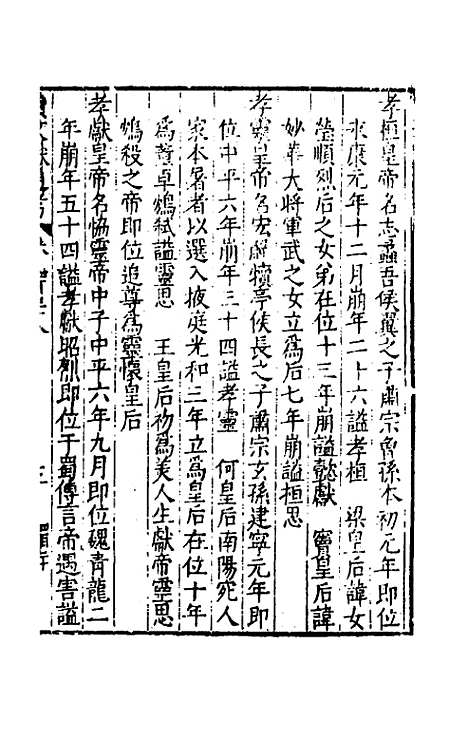 孝桓皇帝名志蠡吾侯翼之子肅宗曾孫本初元年即位
永康元年十二月崩年三十六謚孝桓　梁皇后諱女
瑩順烈后之女弟在位十三年崩謚懿獻　竇皇后諱
妙華大將軍武之女立爲后七年崩謚桓思
孝靈皇帝名宏解犢亭侯長之子肅宗玄孫建寧元年即
位中平六年崩年三十四謚孝靈　何皇后南陽宛人
家本屠者以選入掖庭光和三年立爲皇后在位十年
爲董卓鴆弒謚靈思　王皇后初爲美人生獻帝靈思
鴆殺之帝即位追尊爲靈懷皇后
孝獻皇帝名協靈帝中子中平六年九月即位魏青龍二
年崩年五十四謚孝獻昭烈即位于蜀傳言帝遇害謚